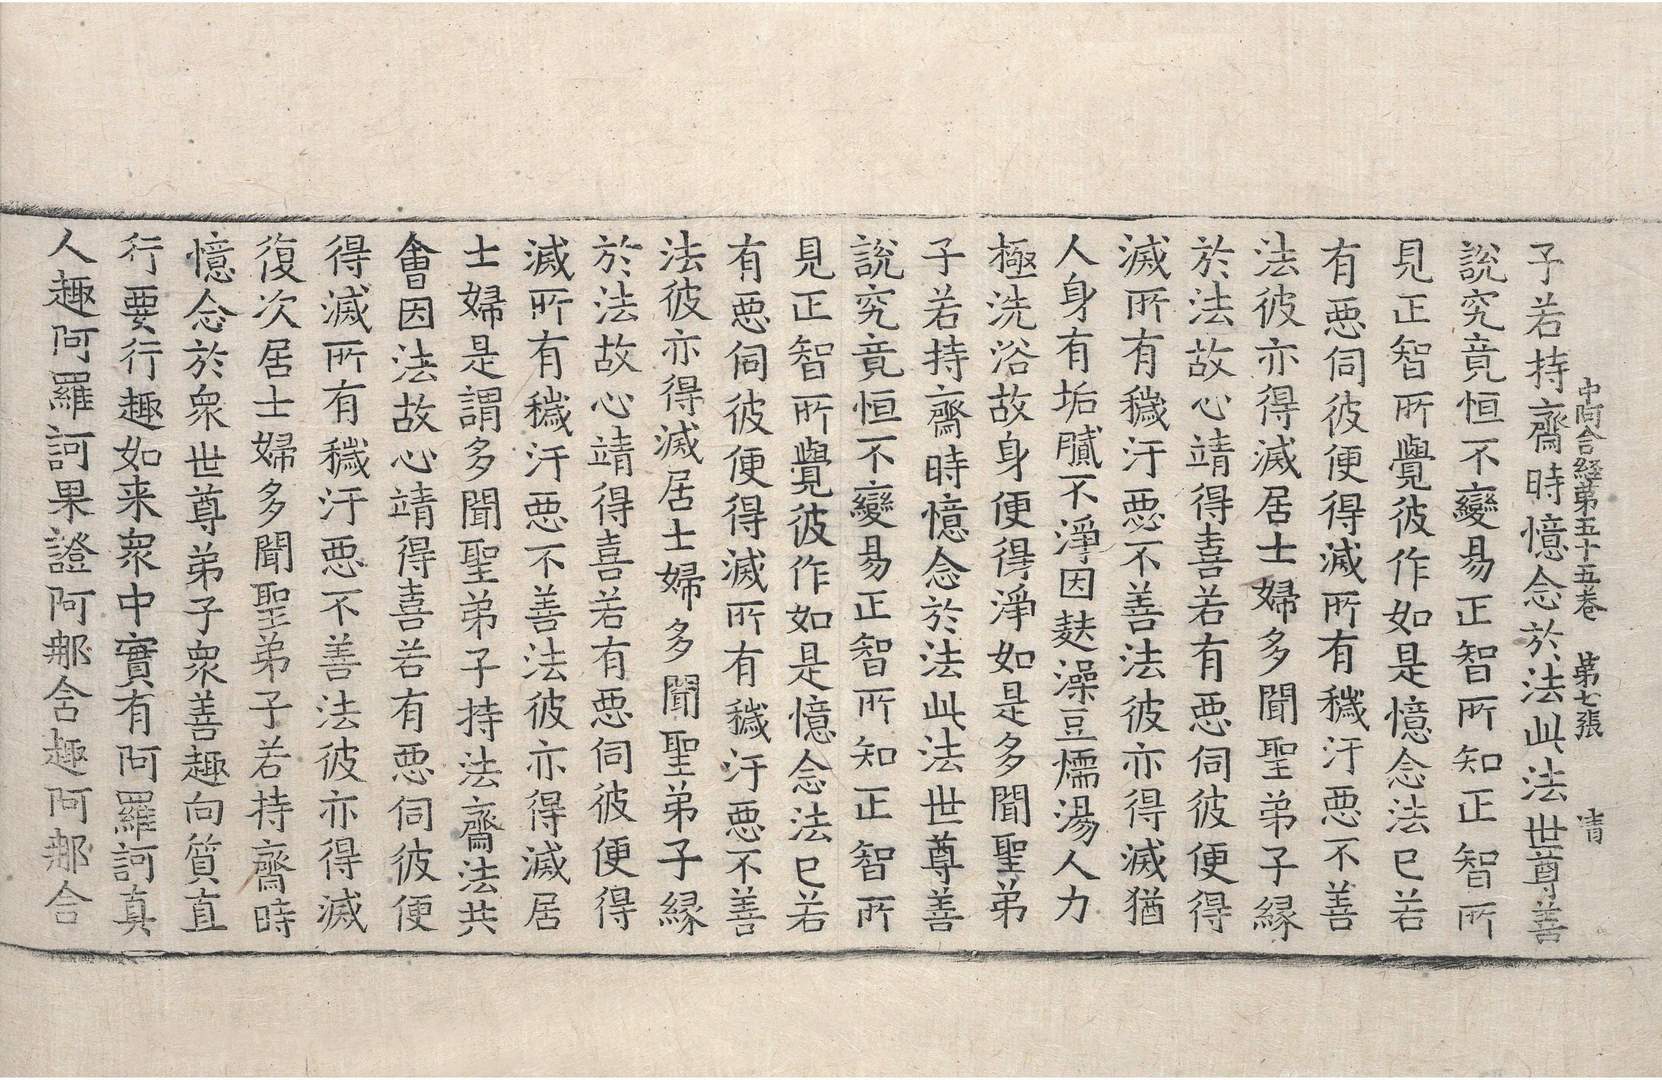 中阿含経第五十五巻 第七張 清
子若持齋時憶念於法此法世尊善
説究竟恒不變易正智所知正智所
見正智所覺彼作如是憶念法已若
有悪伺彼便得滅所有穢汙悪不善
法彼亦得滅居士婦多聞聖弟子縁
於法故心靖得喜若有悪伺彼便得
滅所有穢汙悪不善法彼亦得滅猶
人身有垢膩不淨因麩澡豆燸湯人力
極洗浴故身便得淨如是多聞聖弟
子若持齋時憶念於法此法世尊善
説究竟恒不變易正智所知正智所
見正智所覺彼作如是憶念法已若
有悪伺彼便得滅所有穢汙悪不善
法彼亦得滅居士婦多聞聖弟子縁
於法故心靖得喜若有悪伺彼便得
滅所有穢汙悪不善法彼亦得滅居
士婦是謂多聞聖弟子持法齋法共
會因法故心靖得喜若有悪伺彼便
得滅所有穢汙悪不善法彼亦得滅
復次居士婦多聞聖弟子若持齋時
憶念於衆世尊弟子衆善趣向質直
行要行趣如来衆中實有阿羅訶真
人趣阿羅訶果證阿那含趣阿那含